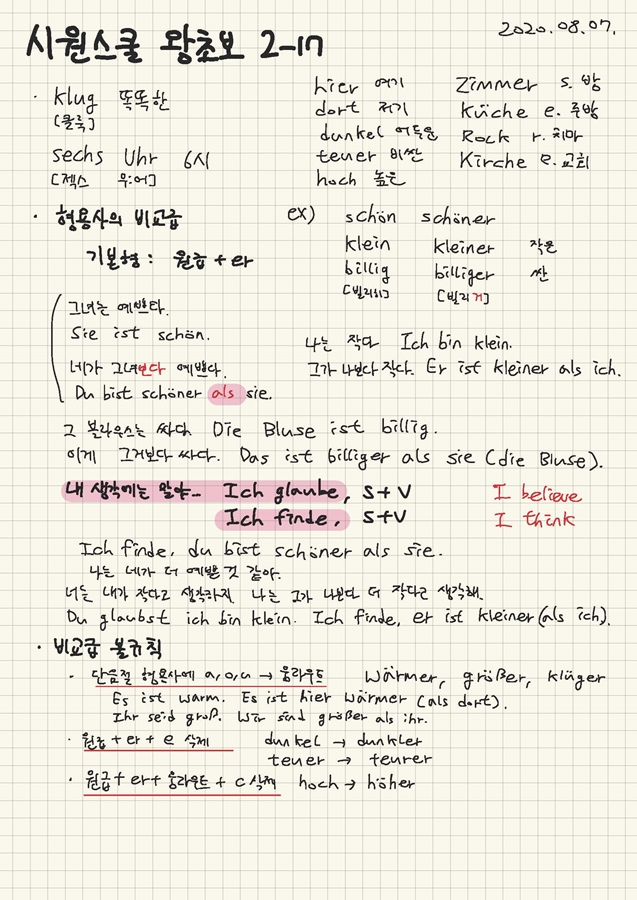 시원스쿨 왕초보 2-17
2020.08.07.
· klug 똑똑한
[클룩]
sechs Uhr 6시
[젝스 우어]
hier 여기
dort 저기
dunkel 어두운
teuer 비싼
hoch 높은
Zimmer s. 방
Küche e. 주방
Rock r. 치마
Kirche e. 교회
· 형용사의 비교급
기본형 : 원급 + er
ex) schön schöner
klein kleiner 작은
billig billiger 싼
[빌리히] [빌리거]
그녀는 예쁘다.
Sie ist schön.
네가 그녀보다 예쁘다.
Du bist schöner als sie.
나는 작다 Ich bin klein.
그가 나보다 작다. Er ist kleiner als ich.
그 블라우스는 싸다. Die Bluse ist billig.
이게 그거보다 싸다. Das ist billiger als sie (die Bluse).
내 생각에는 말야… Ich glaube, S+V I believe
Ich finde, S+V I think
Ich finde, du bist schöner als sie.
나는 네가 더 예쁠 것 같아.
너는 내가 작다고 생각하지. 나는 그가 나보다 더 작다고 생각해.
Du glaubst ich bin klein. Ich finde, er ist kleiner (als ich).
· 비교급 불규칙
· 단음절 형용사에 a, o, u → 움라우트 wärmer, größer, klüger
Es ist warm. Es ist hier wärmer (als dort).
Ihr seid groß. Wir sind größer als ihr.
· 원급 + er + e 삭제 dunkel → dunkler
teuer → teurer
· 원급 + er + 움라우트 + c 삭제 hoch → höher